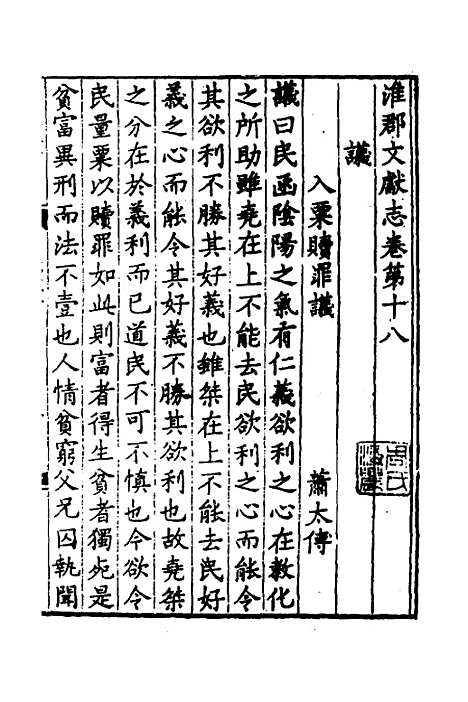 淮郡文獻志卷第十八
議
入粟贖罪議
蕭太傅
議曰民函陰陽之氣有仁義欲利之心在教化
之所助雖堯在上不能去民欲利之心而能令
其欲利不勝其好義也雖桀在上不能去民好
義之心而能令其好義不勝其欲利也故堯桀
之分在於義利而已道民不可不慎也今欲令
民量粟以贖罪如此則富者得生貧者獨死是
貧富異刑而法不壹也人情貧窮父兄囚執聞